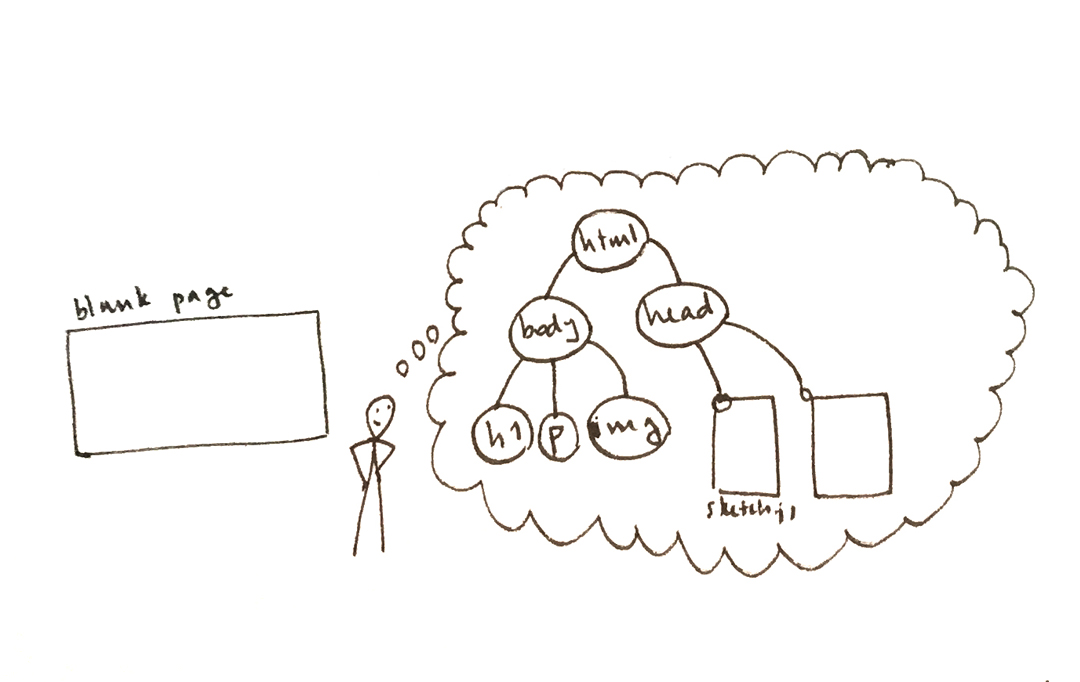 blank page
html
body
head
h1
p
img
sketch.js